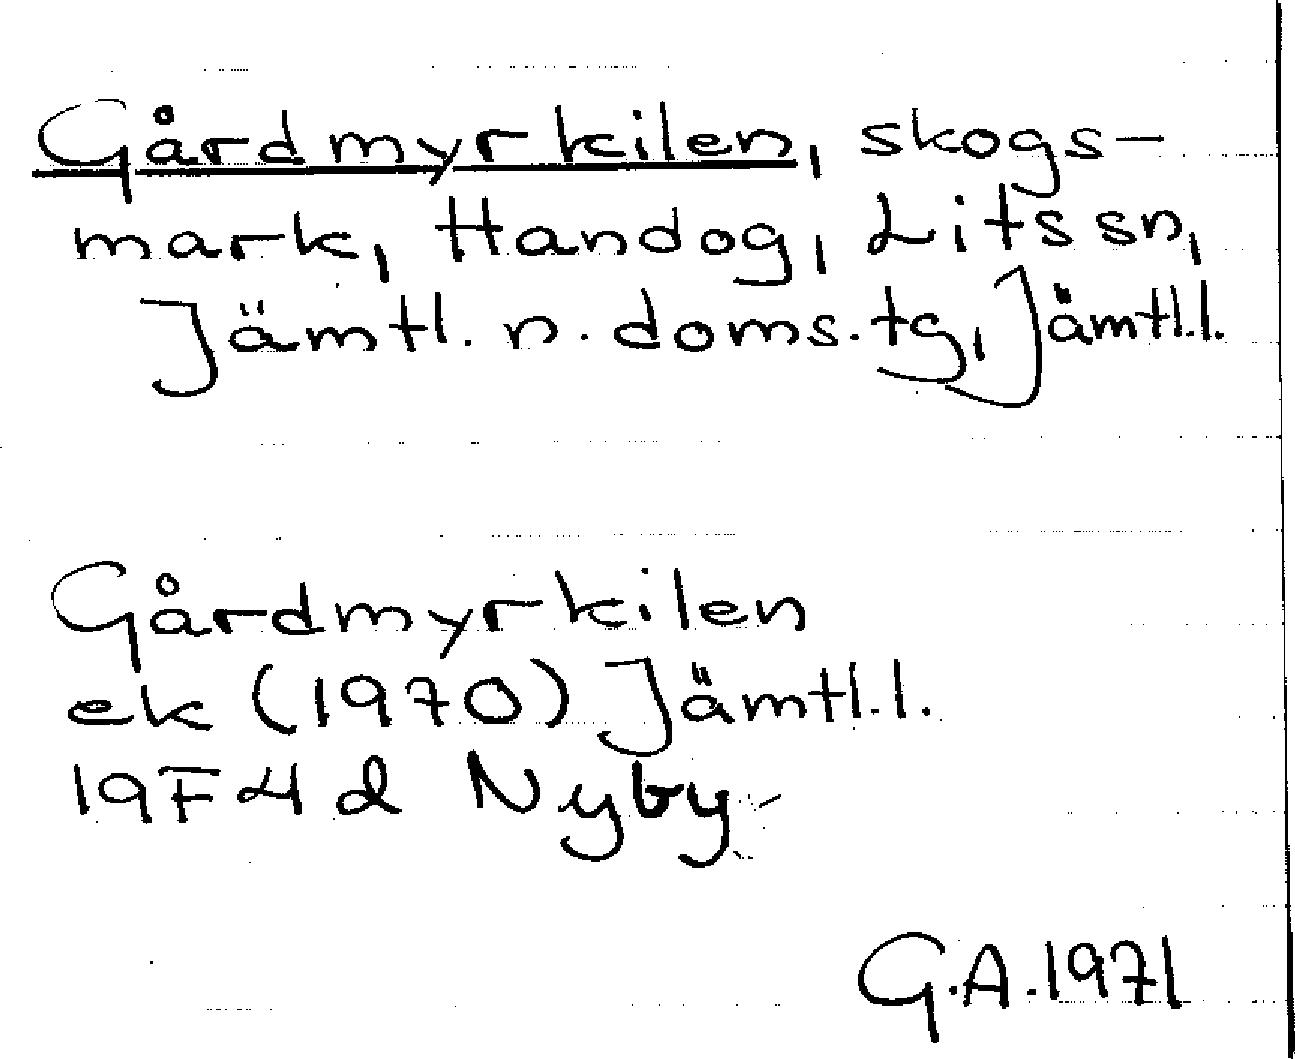 Gårdmyrkilen, skogs-
mark, Handog, Lits sn,
Jämtl. n. doms.tg, Jämtl.l.
Gårdmyrkilen
ek (1970) Jämtl.l.
19F4d Nyby
G.A.1971